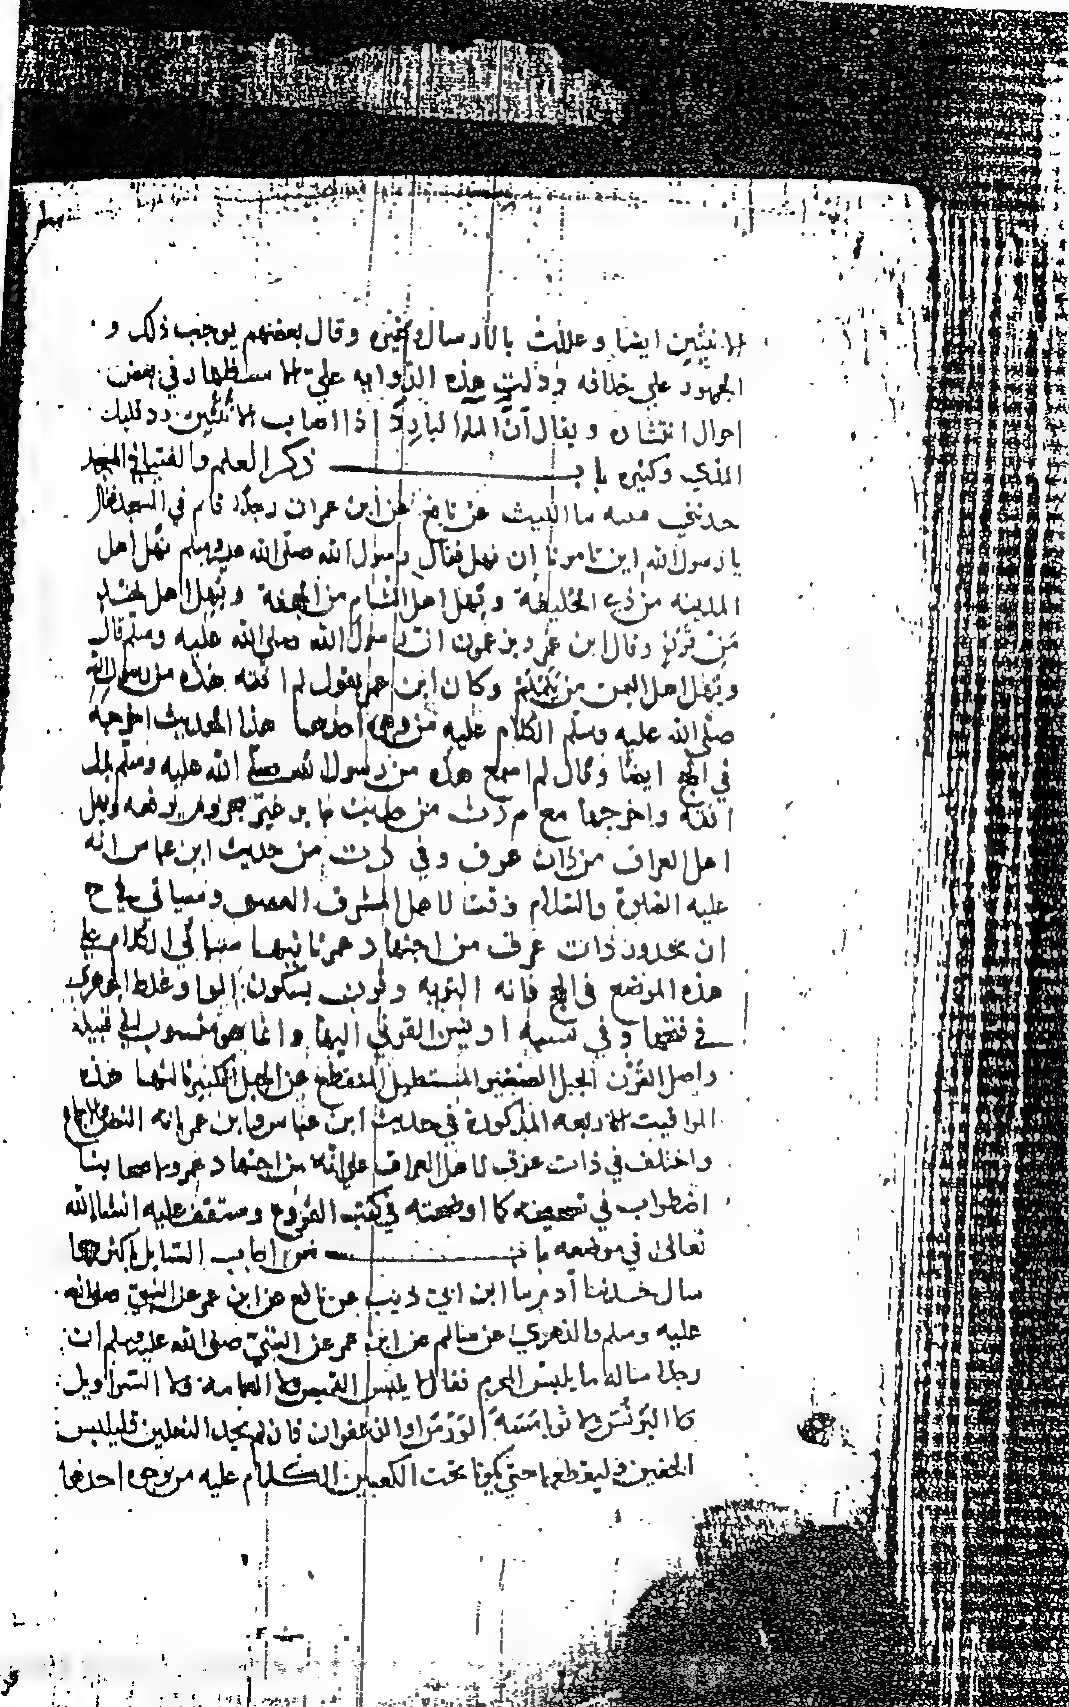 الانثيين ايضا وعللت بالارسال وغيره وقال بعضهم يوجب ذلك و
الجمهور على خلافه ودلت هذه الرواية على الاستظهار في بعض
احوال انتشاره ويقال ان الماء البارد اذا اصاب الانثيين رد قليل
المذي وكثيره باب ذكر العلم والفتيا في المسجد
حدثني قتيبه ثنا الليث عن نافع عن ابن عمران رجلا قام في المسجد فقال
يا رسول الله اين تامرنا ان نهل فقال رسول الله صلى الله عليه وسلم يهل اهل
المدينه من ذي الحليفة ويهل اهل الشام من الجحفة ويهل اهل نجد
من قرن وقال ابن عمر ويزعمون ان رسول الله صلى الله عليه وسلم قال
ويهل اهل اليمن من يلملم وكان ابن عمر يقول لم افقه هذه من رسول الله
صلى الله عليه وسلم الكلام عليه من وجوه احدها هذا الحديث اخرجه
في الحج ايضا وقال لم اسمع هذه من رسول الله صلى الله عليه وسلم
واخرجها مع م د ت من حديث جابر غير مجزوم برفعه ويهل
اهل العراق من ذات عرق وفي د ت من حديث ابن عباس انه
عليه الصلوة والسلام وقت لاهل المشرق العقيق وسياتي في ح
ان تحديد ذات عرق من اجتهاد عمر ثانيها سياتي الكلام على
هذه المواضع في الحج فانه اليق به وقرن بسكون الرا وغلط الجوهري
في فتحها وفي نسبة اويس القرني اليها وانما هو منسوب الى قبيلة
واصل القرن الجبل الصغير المستطيل المنقطع عن الجبل الكبير ثالثها هذه
المواقيت الاربعه المذكورة في حديث ابن عباس وابن عمر ثابته بالنص والاجماع
واختلف في ذات عرق لاهل العراق على انه من اجتهاد عمر
اضطراب في تصحيحه كما اوضحته في كتب الفروع وستقف عليه ان شا الله
تعالى في موضعه باب من اجاب السايل باكثر مما
سال حدثنا ادم ثنا ابن ابي ذيب عن نافع عن ابن عمر عن النبي صلى الله
عليه وسلم والزهري عن سالم عن ابن عمر عن النبي صلى الله عليه وسلم ان
رجلا ساله ما يلبس المحرم فقال لا يلبس القميص ولا العمامة ولا السراويل
ولا البرنس ولا ثوبا مسه الورس او الزعفران فان لم يجد النعلين فليلبس
الخفين وليقطعهما حتى يكونا تحت الكعبين الكلام عليه من وجوه احدها